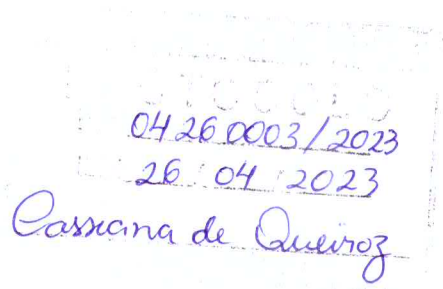 04260003/2023
26 04 2023
Cassiana de Queiroz